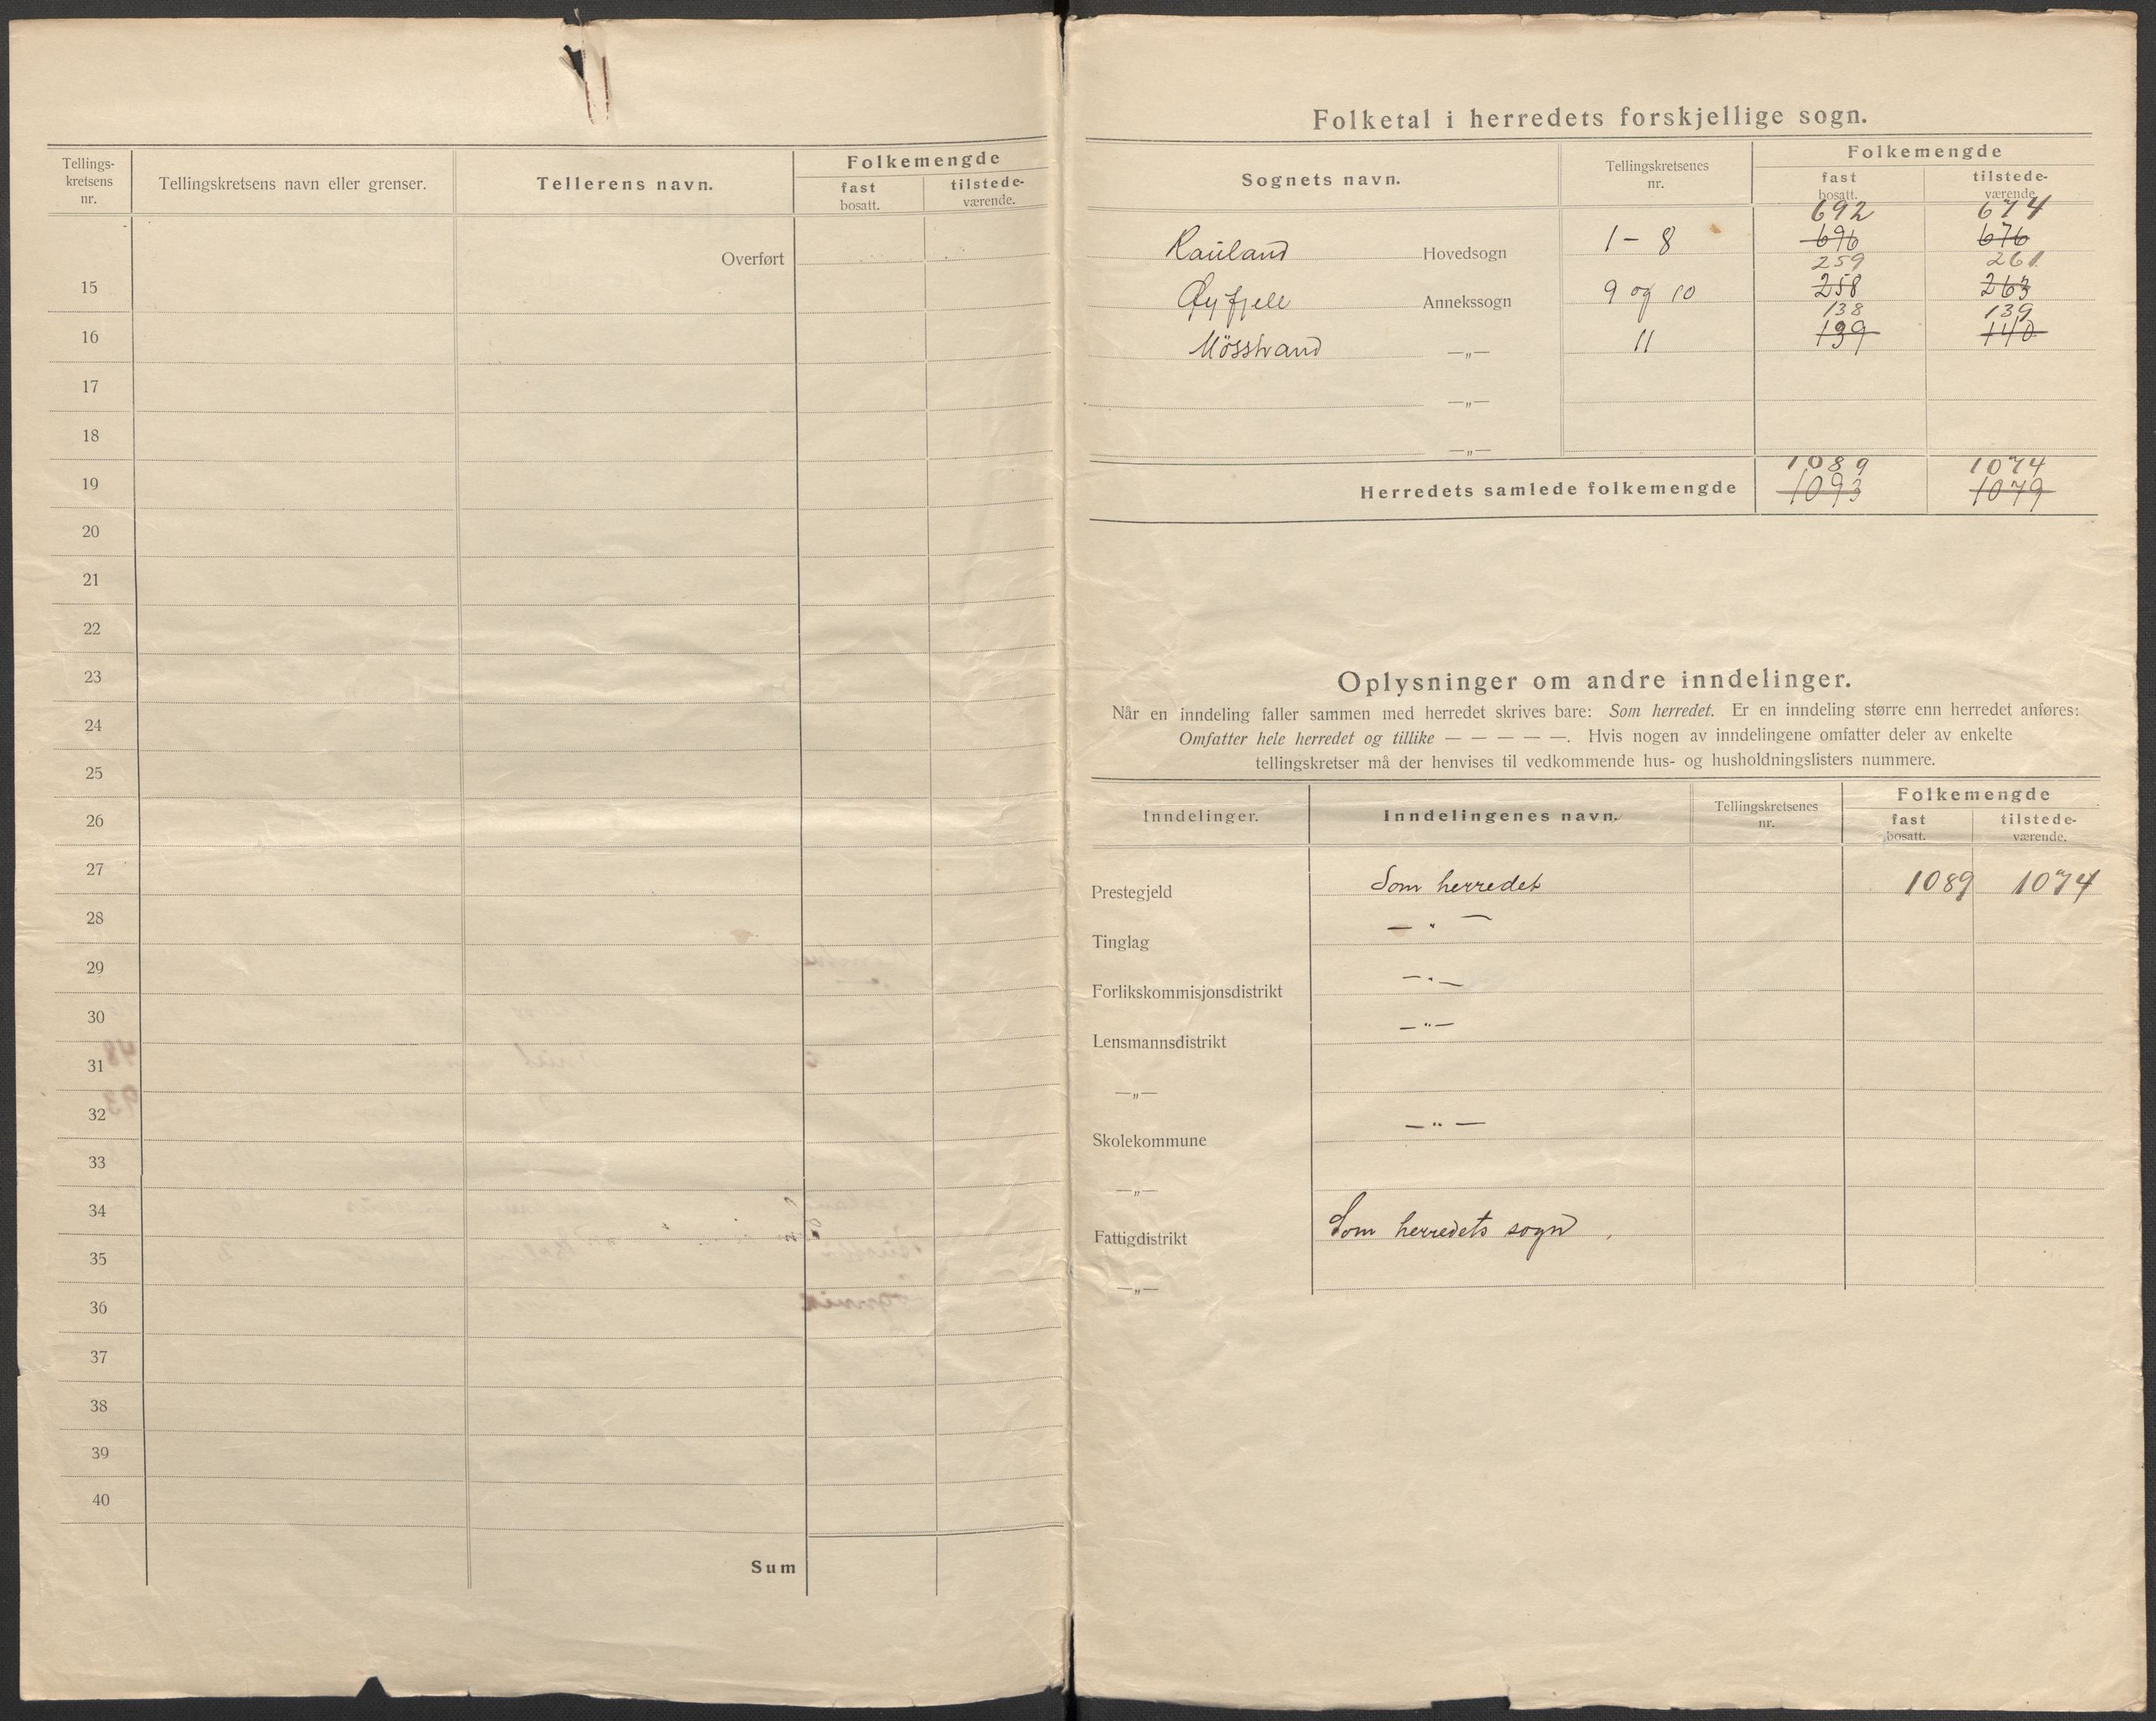 Tellings-
kretsens
nr.
Tellingskretsens navn eller grenser.
Tellerens navn.
Folkemengde
fast
bosatt.
tilstede-
værende.
Overført
15
16
17
18
19
20
21
22
23
24
25
26
27
28
29
30
31
32
33
34
35
36
37
38
39
40
Sum
Folketal i herredets forskjellige sogn.
Sognets navn.
Tellingskretsenes
nr.
Folkemengde
fast
bosatt.
tilstede-
værende
692 674
Rauland Hovedsogn 1 - 8 696 676
259 261
Øyfjell Annekssogn 9 og 10 258 263
138 139
Mösstrand —„— 11 139 140
—„—
—„—
1089 1074
Herredets samlede folkemengde 1093 1079
Oplysninger om andre inndelinger.
Når en inndeling faller sammen med herredet skrives bare: Som herredet. Er en inndeling større enn herredet anføres:
Omfatter hele herredet og tillike — — — — —. Hvis nogen av inndelingene omfatter deler av enkelte
tellingskretser må der henvises til vedkommende hus- og husholdningslisters nummere.
Inndelinger.
Inndelingenes navn.
Tellingskretsenes
nr.
Folkemengde
fast
bosatt.
tilstede-
værende.
Prestegjeld Som herredet 1089 1074
Tinglag —„—
Forlikskommisjonsdistrikt —„—
Lensmannsdistrikt —„—
—„—
Skolekommune —„—
—„—
Fattigdistrikt Som herredets sogn.
—„—